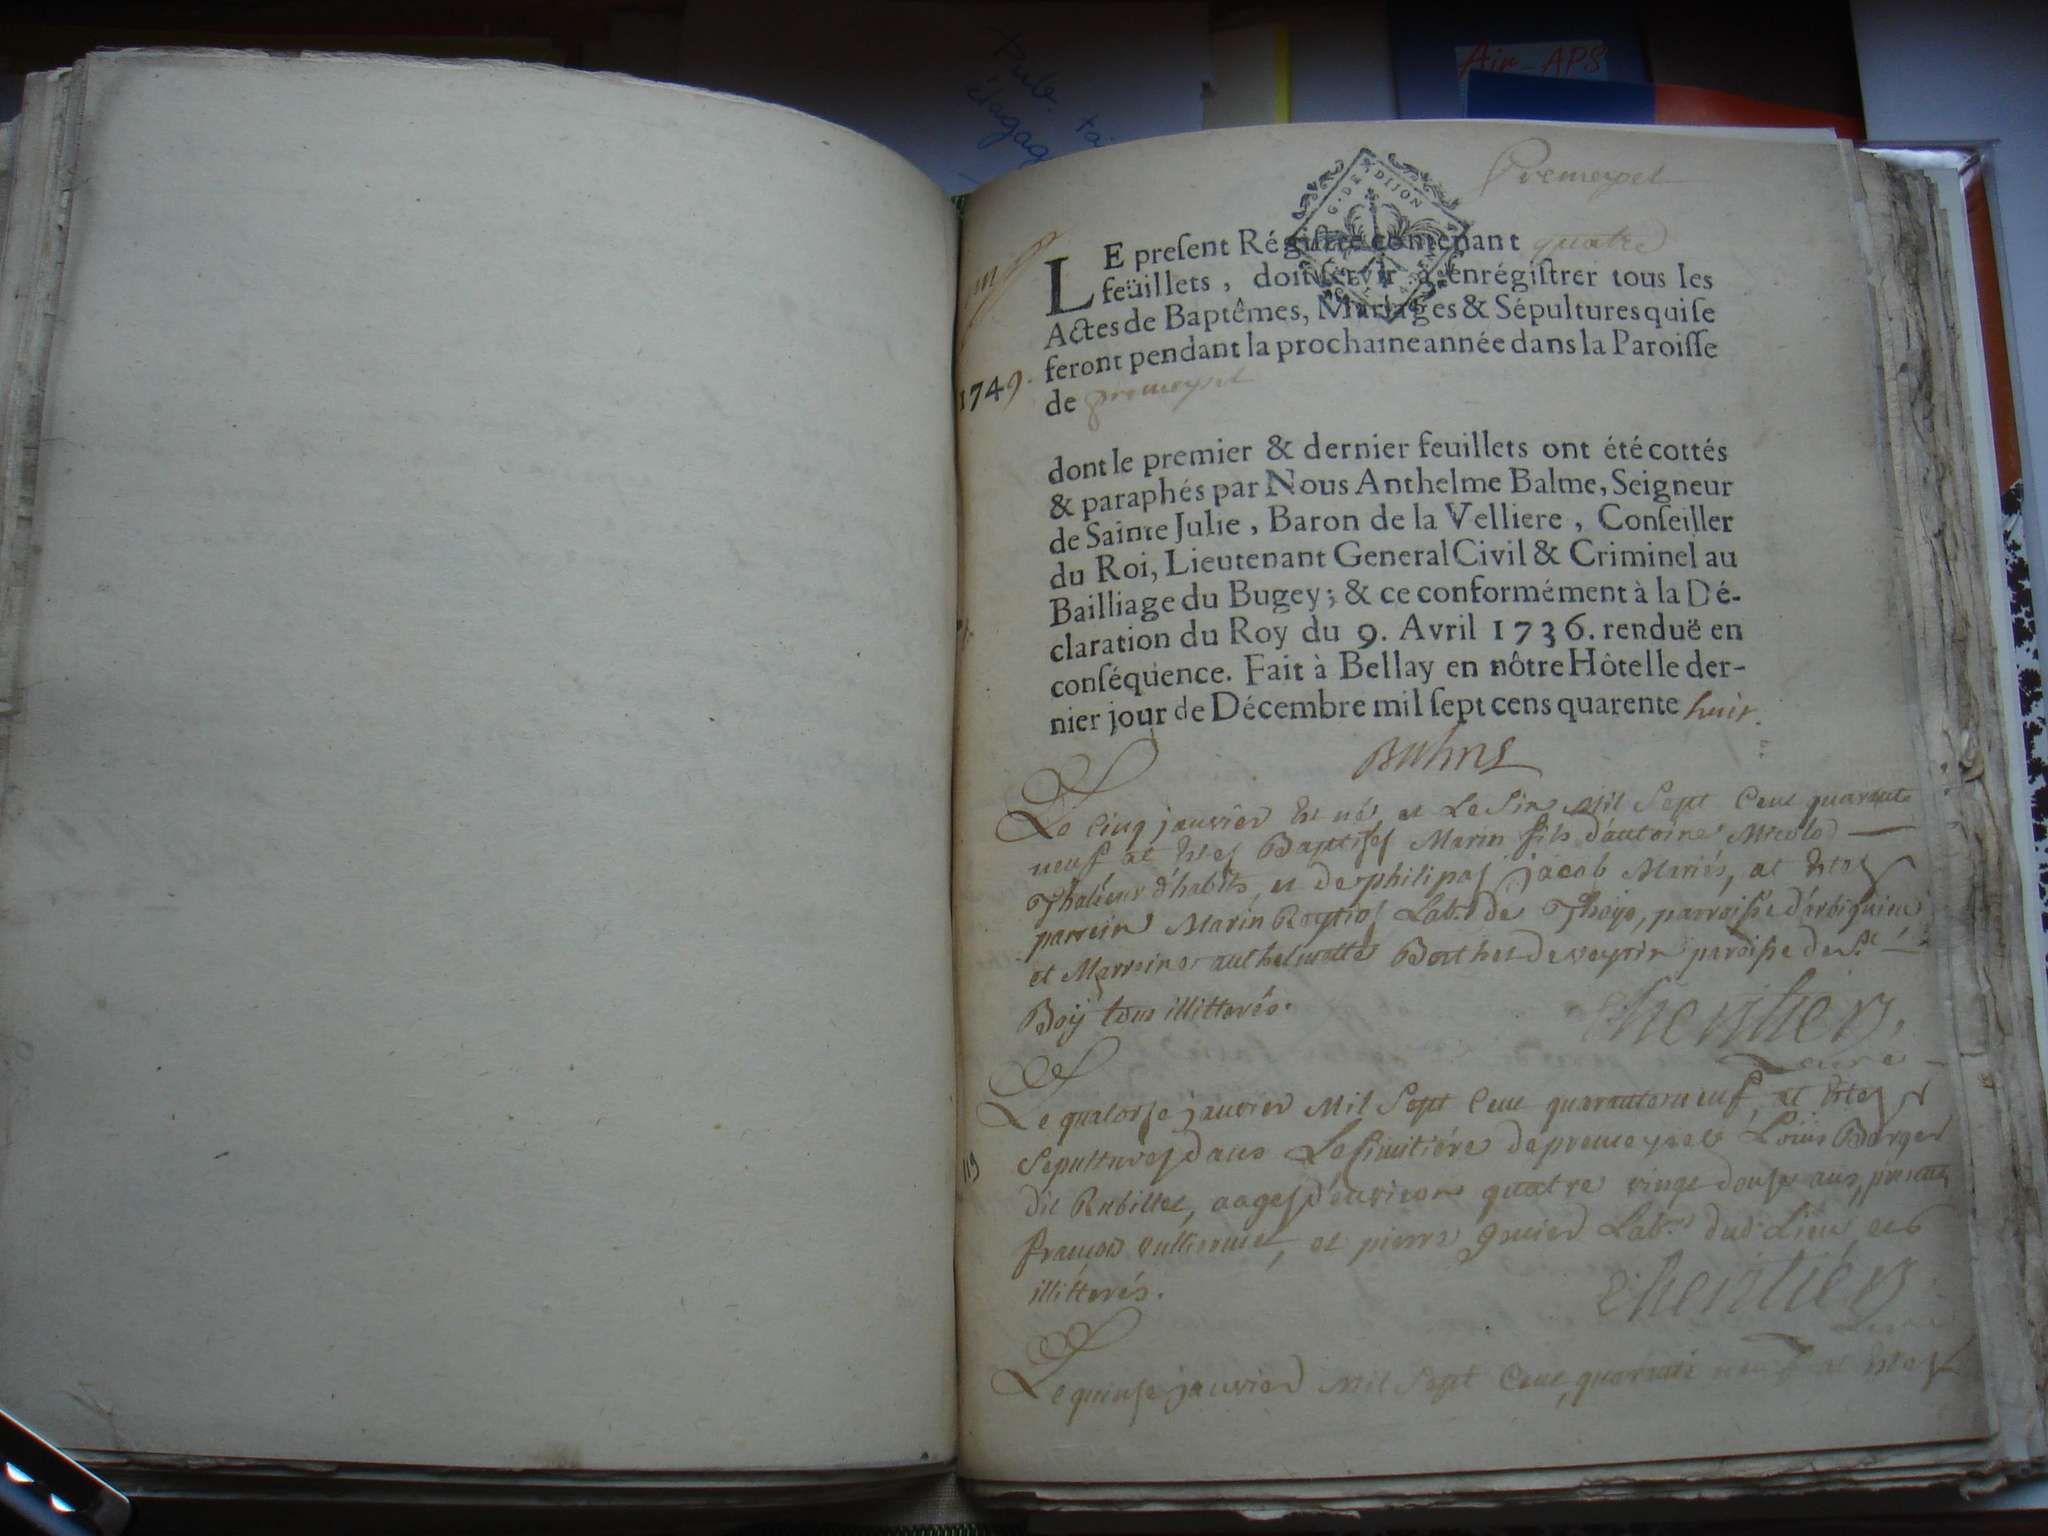 Pub. tai
élagag
Air-APS
Premeysel
G. DE DIJON
LE preſent Régiſtre contenant quatre
feüillets, doit ſervir à enrégiſtrer tous les
Actes de Baptêmes, Mariages & Sépultures qui ſe
feront pendant la prochaine année dans la Paroiſſe
1749.
de premeysel
dont le premier & dernier feuillets ont été cottés
& paraphés par Nous Anthelme Balme, Seigneur
de Sainte Julie, Baron de la Velliere, Conſeiller
du Roi, Lieutenant General Civil & Criminel au
Bailliage du Bugey; & ce conformément à la Dé-
claration du Roy du 9. Avril 1736. renduë en
conſéquence. Fait à Bellay en nôtre Hôtel le der-
nier jour de Décembre mil ſept cens quarente huit.
Le Cinq janvier Est né, et Le Mil Sept Cent quarante
neuf at Baptisé Marin fils d'antoine
d'habits, et de philipa jacob Mariés, at
parrein Marin Lab.r de Thoÿs, parroisse d'arbignieu
et Marreine anthelmette Berthet de veyrin paroisse de St
Boÿ tous illitterés.
Le quatorse janvier Mil Sept Cent quarante neuf, at
Sepulturé dans Le Simitiére de premeysel Louis Berger
dit Rubillet, aagé d'environ quatre vingt douse ans, présents
françois et pierre Lab.rs dud. Lieu
illitterés.
Le quinse janvier Mil Sept Cent quarante neuf at